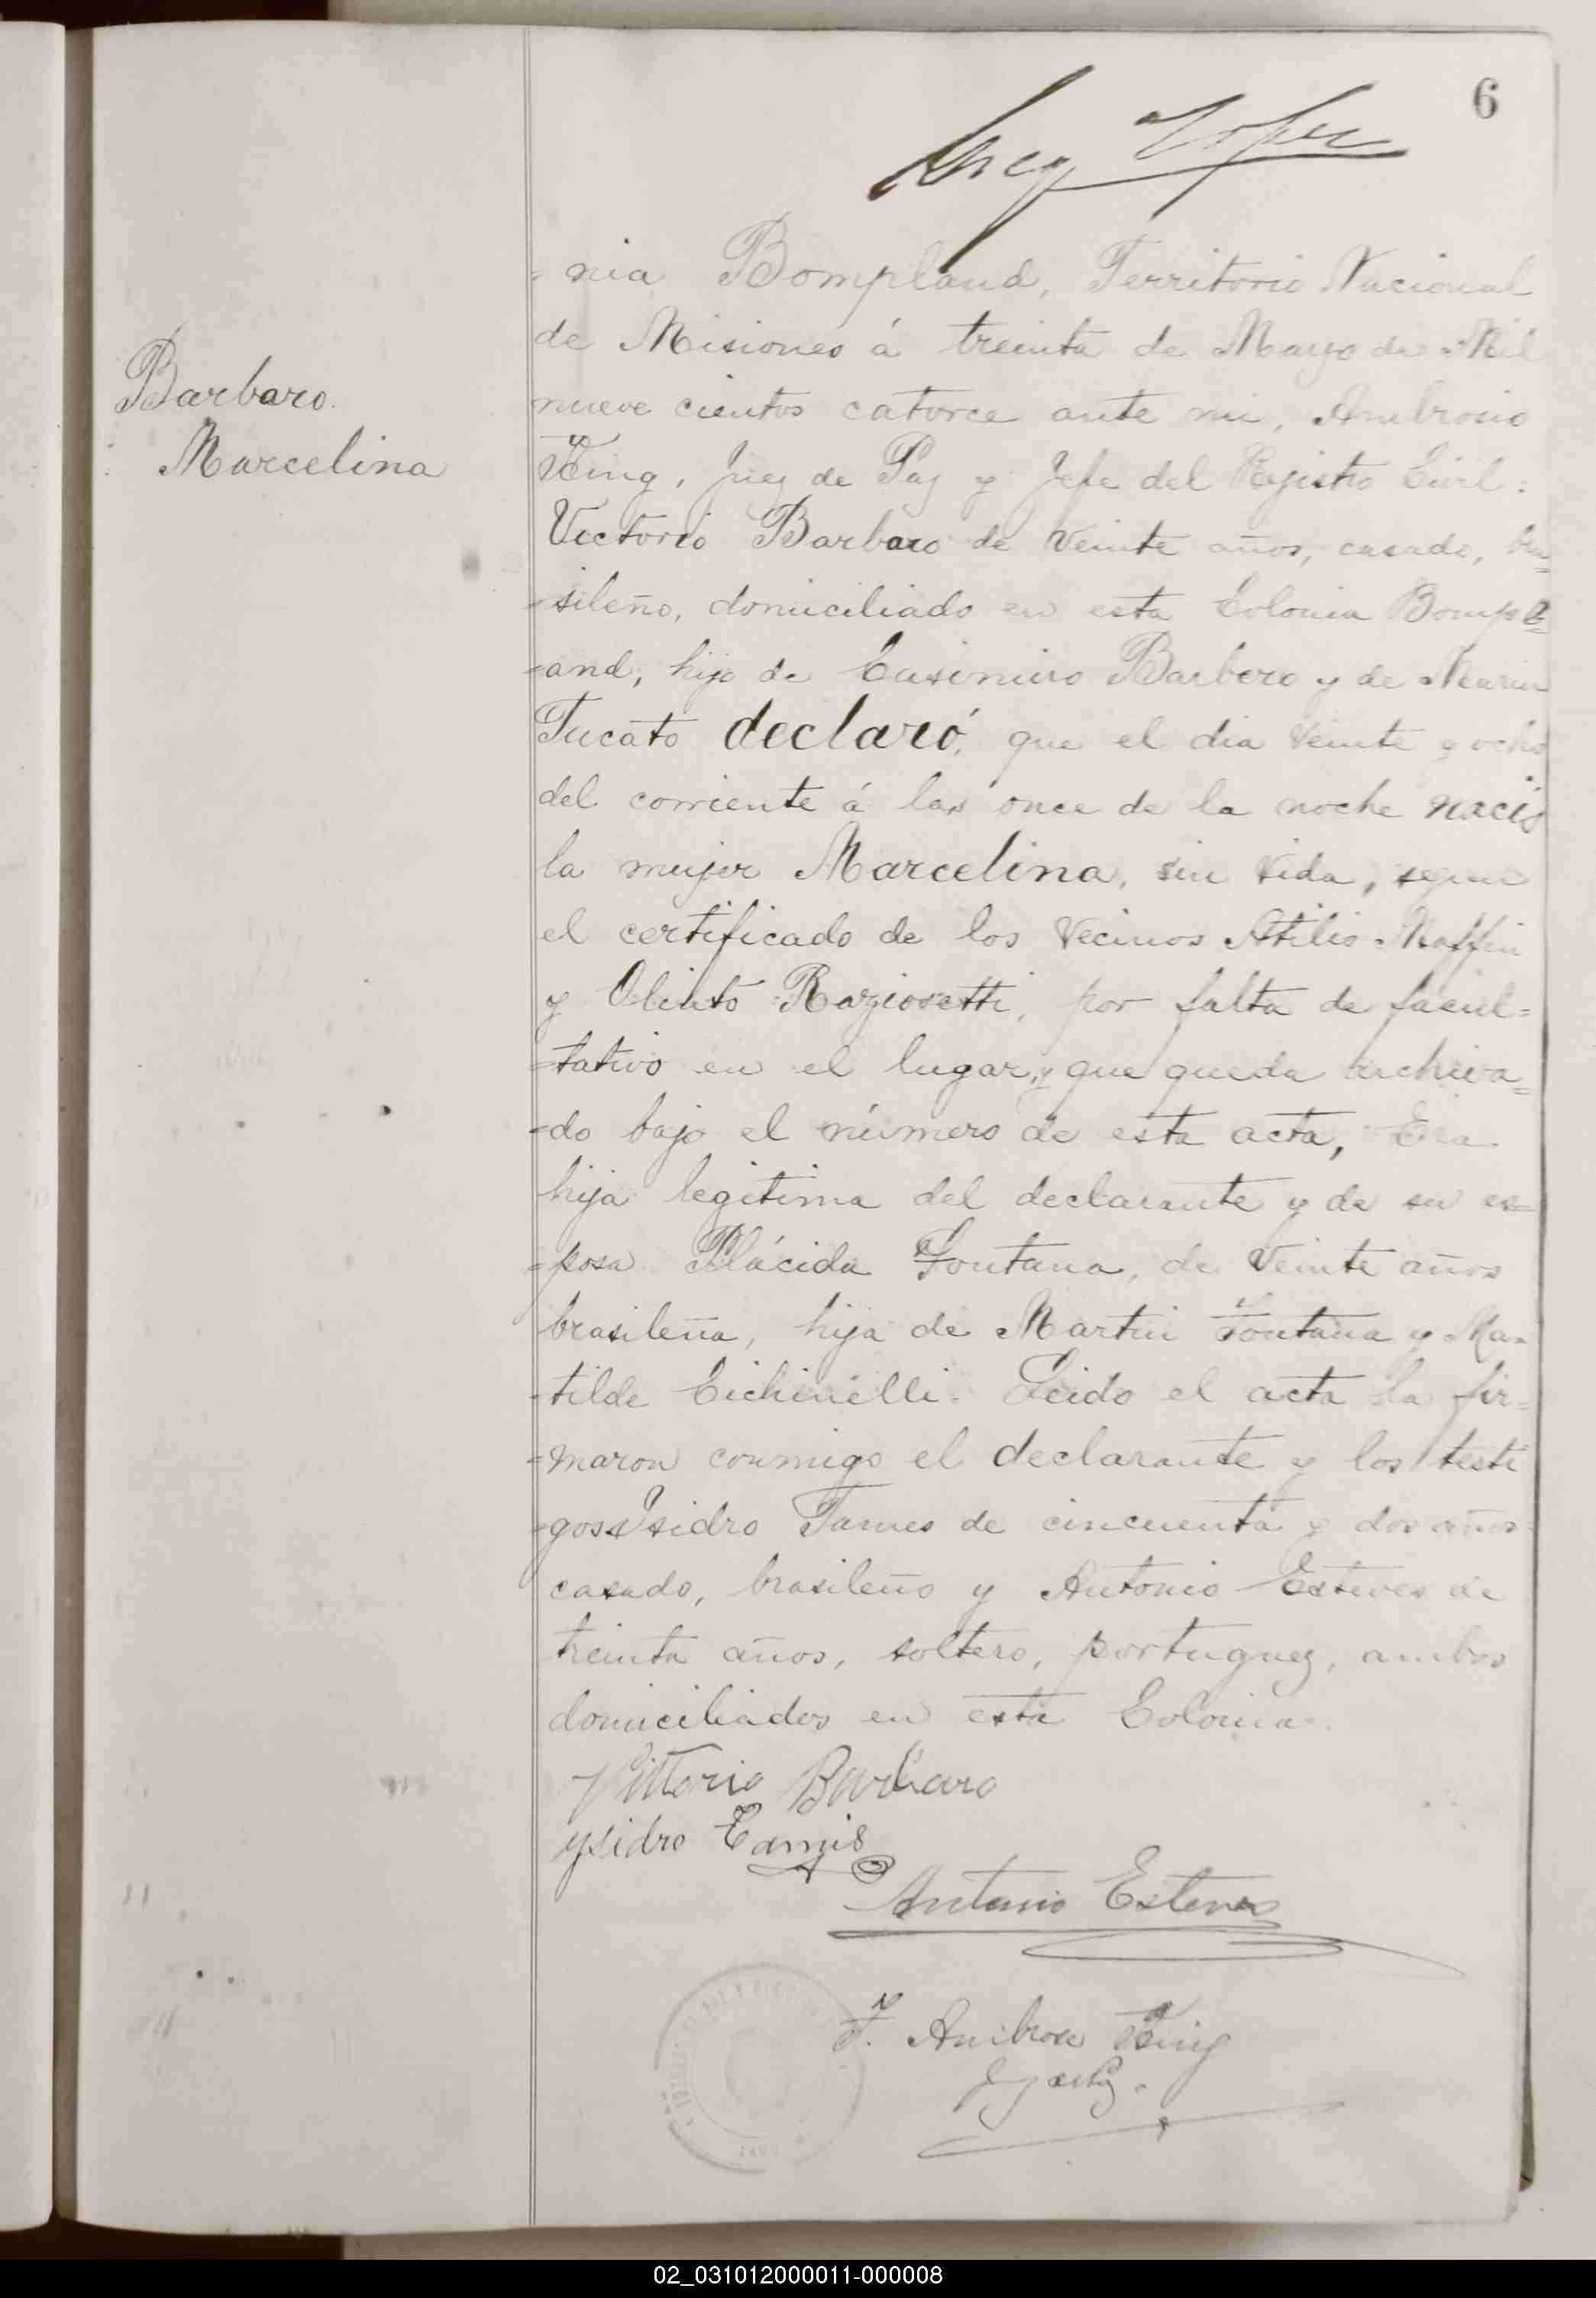 6
Lopez
Barbaro
Marcelina
=nia Bompland, Territorio Nacional
de Misiones á treinta de Mayo de Mil
nueve cientos catorce ante mi, Ambrosio
King, Juez de Paz y Jefe del Rejistro Civil:
Victorio Barbaro de veinte años, casado, bra=
=sileño, domiciliado en esta Colonia Bompl=
=and, hijo de Casimiro Barbero y de Maria
Tucato declaró, que el dia veinte y ocho
del corriente á las once de la noche nació
la mujer Marcelina, sin vida, segun
el certificado de los vecinos Atilio Maffin
y Olinto Raziosetti, por falta de facul=
=tativo en el lugar, y que queda archiva=
=do bajo el número de esta acta, Era
hija legitima del declarante y de su es=
=posa Plácida Fontana, de veinte años
brasileña, hija de Martin Fontana y Ma=
=tilde Cichinelli. Leido el acta la fir=
=maron conmigo el declarante y los testi
=gos Isidro Tames de cincuenta y dos años
casado, brasileño y Antonio Esteves de
treinta años, soltero, portuguez, ambos
domiciliados en esta Colonia.
Vittorio Barbaro
ysidro Tamis
Antonio Esteves
F. Ambrose King
J. de Paz.
02_031012000011-000008